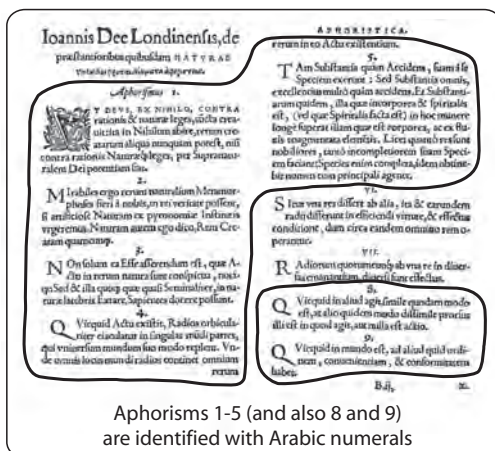 Ioannis Dee Londinensis, de
præstantioribus quibusdam NATVRAE
Aphorismus 1.
VT DEVS, EX NIHILO, CONTRA
rationis & naturæ leges, cũcta crea-
uit: ita in Nihilum abire, rerum cre-
atarum aliqua nunquam potest, nisi
contra rationis Naturæq; leges, per Supranatu-
ralem Dei potentiam fiat.
2.
MIrabiles ergo rerum naturalium Metamor-
phoses fieri à nobis, in rei veritate possent,
si artificiosè Naturam ex pyronomiæ Institutis
vrgeremus. Naturam autem ego dico, Rem Cre-
atam quamcunq.
3.
NOn solum ea Esse asserendum est, quæ A-
ctu in rerum natura sunt conspicua, nota-
Sed & illa quoq; quæ quasi Seminaliter, in na-
turæ latebris Extare, Sapientes docere possunt.
4.
QVicquid Actu existit, Radios orbicula-
riter eiaculatur in singulas mũdi partes,
qui vniuersum mundum suo modo replent. Vn-
de omnis locus mundi radios continet omnium
rerum
APHORISTICA.
rerum in eo Actu existentium.
5.
TAm Substantia quàm Accidens, suam à se
Speciem exerunt: Sed Substantia omnis,
excellentius multò quàm accidens. Ex Substanti-
arum quidem, illa quæ incorporea & spiritalis
est, (vel quæ Spiritalis facta est) in hoc munere
longè superat illam quæ est corporea, ac ex flu-
xis coagmentata elementis.
VI.
SIcut vna res differt ab alia, ita & earundem
radii differunt in efficiendi virtute, & effectus
conditione, dum circa eandem omnino rem o-
perantur.
VII.
RAdiorum quorumcunq; ab vna re in diuer-
sa emanantium, diuersi sunt effectus.
8.
QVicquid in aliud agit, simile quodam modo
est, at alio quidem modo dissimile prorsus
illi est in quod agit, aut nulla est actio.
9.
QVicquid in mundo est, ad aliud quid ordi-
nem, conuenientiam, & conformitatem
habet.
B.ij.
Aphorisms 1-5 (and also 8 and 9)
are identified with Arabic numerals